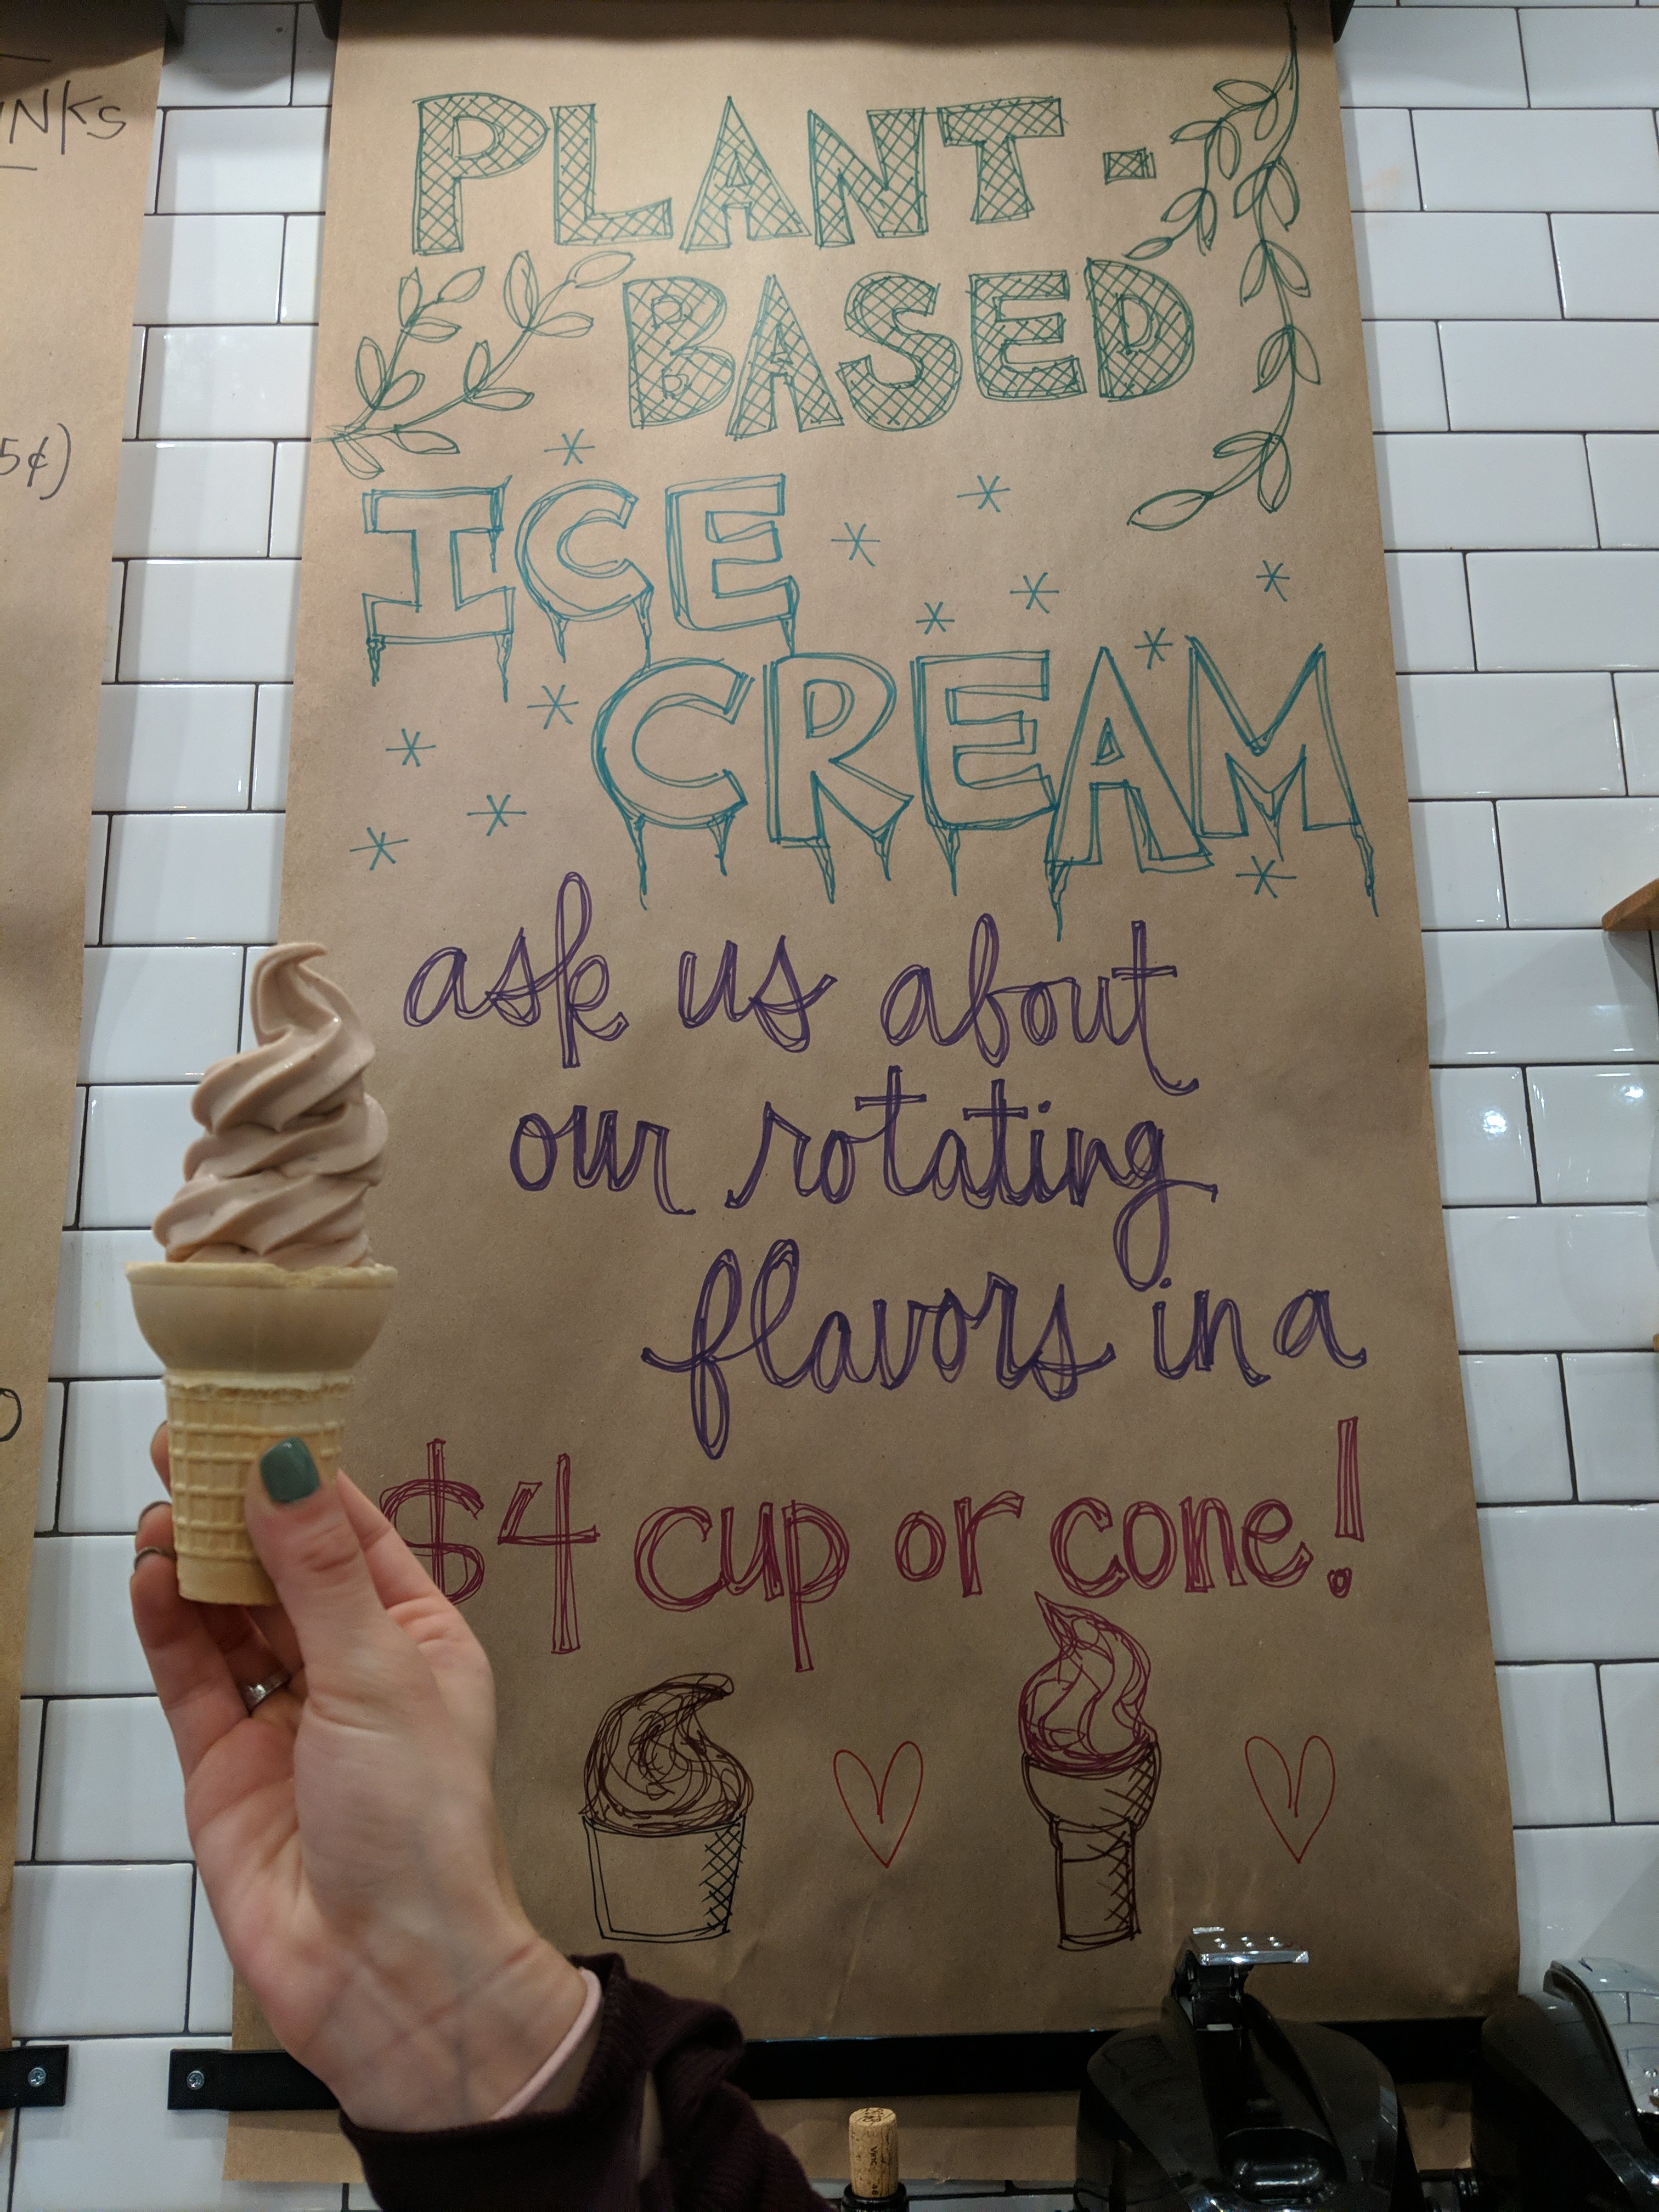 PLANT-
BASED
ICE
CREAM
ask us about
our rotating
flavors in a
$4 cup or cone!
5¢)